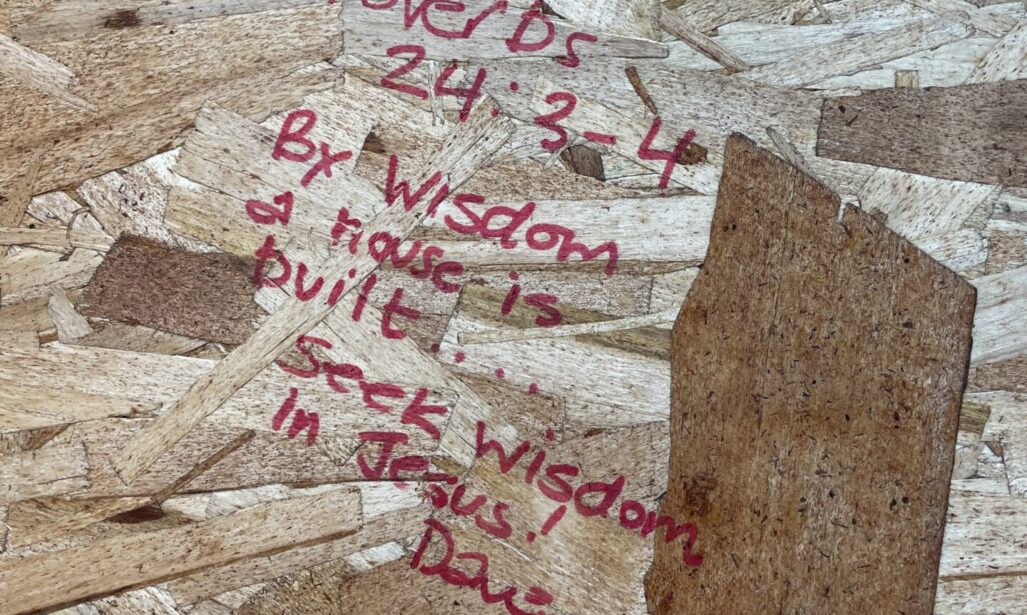 overbs
24:3-4
By Wisdom
a house is
built....
Seek Wisdom
In Jesus!
Dave